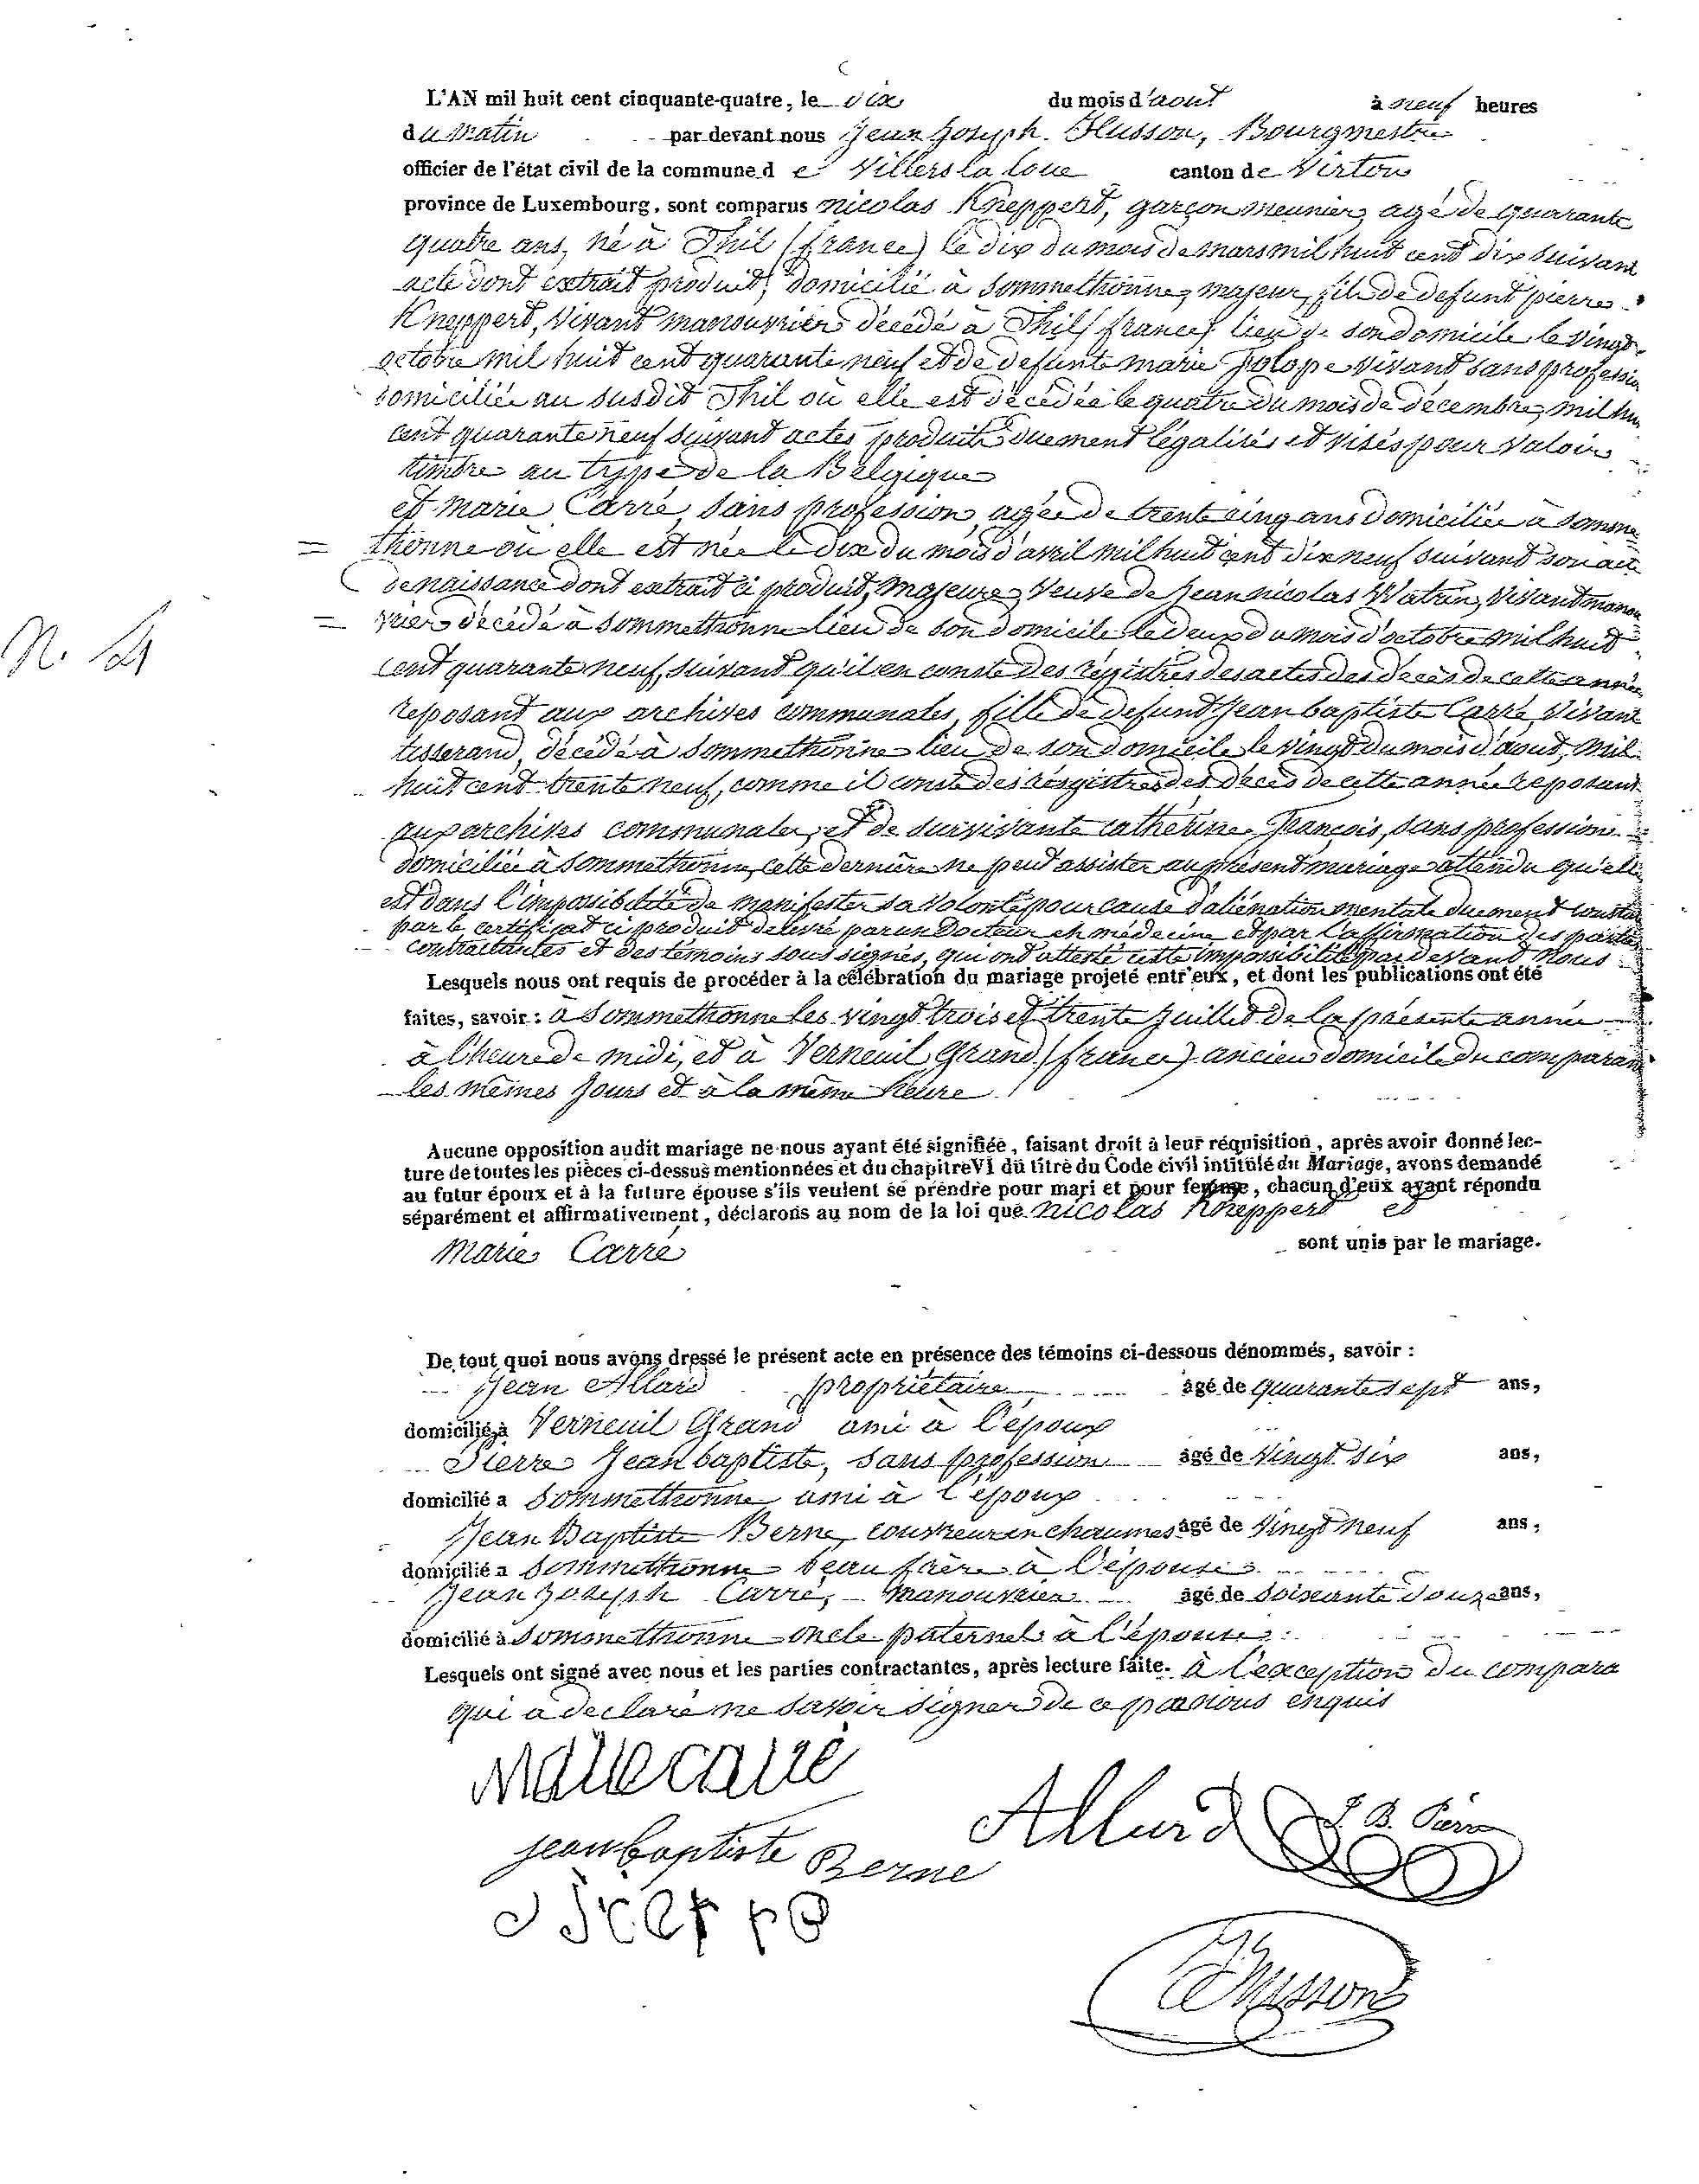 L'AN mil huit cent cinquante-quatre, le dix du mois d'aout à neuf heures
du matin par devant nous Jean Joseph Husson, Bourgmestre
officier de l'état civil de la commune de Villers la loue canton de Virton
province de Luxembourg, sont comparus nicolas Kneppert, garçon meunier, agé de quarante
quatre ans, né à Thil (france) le dix du mois de mars mil huit cent dix suivant
acte dont extrait produit, domicilié à Sommethonne, majeur, fils de defunt pierre
Kneppert, vivant manouvrier décédé à Thil (france) lieu de son domicile le vingt
octobre mil huit cent quarante neuf et de defunte marie vivant sans profession
domiciliée au susdit Thil où elle est décédée le quatre du mois de décembre, mil hui
cent quarante neuf suivant actes produits duement légalisés et visés pour valoir
timbre au type de la Belgique
et marie Carré, sans profession, agée de trente cinq ans domiciliée à Somme
thonne où elle est née le dix du mois d'avril mil huit cent dix neuf suivant son acte
de naissance dont extrait ci produit, majeure, veuve de Jean nicolas Watrin, vivant manou
vrier décédé à Sommethonne lieu de son domicile le deux du mois d'octobre mil huit
cent quarante neuf, suivant qu'il en conste des régistres des actes des décès de cette année
reposant aux archives communales, fille de defunt Jean baptiste Carré, vivant
tisserand, décédé à Sommethonne lieu de son domicile le vingt du mois d'aout, mil
huit cent trente neuf, comme il conste des résgistres des décès de cette année reposant
aux archives communales, et de survivante catherine françois, sans profession
domiciliée à Sommethonne, cette dernière ne peut assister au présent mariage attendu qu'elle
est dans l'impossibilité de manifester sa volonté pour cause d'aliénation mentale duement constat
par le certificat ci produit delivré par un Docteur en médecine et par l'affirmation des parties
contractantes et des témoins sous signés, qui ont attesté cette impossibilité par devant nous
Lesquels nous ont requis de procéder à la célébration du mariage projeté entr'eux, et dont les publications ont été
faites, savoir : à Sommethonne les vingt trois et trente Juillet de la présente année
à l'heure de midi, et à Verneuil Grand (france) ancien domicile du comparant
les mêmes jours et à la même heure
Aucune opposition audit mariage ne nous ayant été signifiée, faisant droit à leur réquisition, après avoir donné lec-
ture de toutes les pièces ci-dessus mentionnées et du chapitre VI du titre du Code civil intitulé du Mariage, avons demandé
au futur époux et à la future épouse s'ils veulent se prendre pour mari et pour femme, chacun d'eux ayant répondu
séparément et affirmativement, déclarons au nom de la loi que nicolas Kneppert et
Marie Carré sont unis par le mariage.
N. 4
De tout quoi nous avons dressé le présent acte en présence des témoins ci-dessous dénommés, savoir :
Jean Allard propriétaire, âgé de quarante sept ans,
domicilié à Verneuil Grand ami à l'époux
Pierre Jean baptiste, sans profession âgé de vingt six ans,
domicilié a Sommethonne ami à l'époux
Jean Baptiste Berne, couvreur en chaumes âgé de vingt neuf ans,
domicilié a Sommethonne beau frère à l'épouse
Jean Joseph Carré, manouvrier âgé de soixante douze ans,
domicilié à Sommethonne oncle paternel à l'épouse
Lesquels ont signé avec nous et les parties contractantes, après lecture faite. à l'exception du compara
qui a declaré ne savoir signer de ce par nous enquis
Marie carré
Allard J. B. Pierre
jean baptiste Berne
Husson